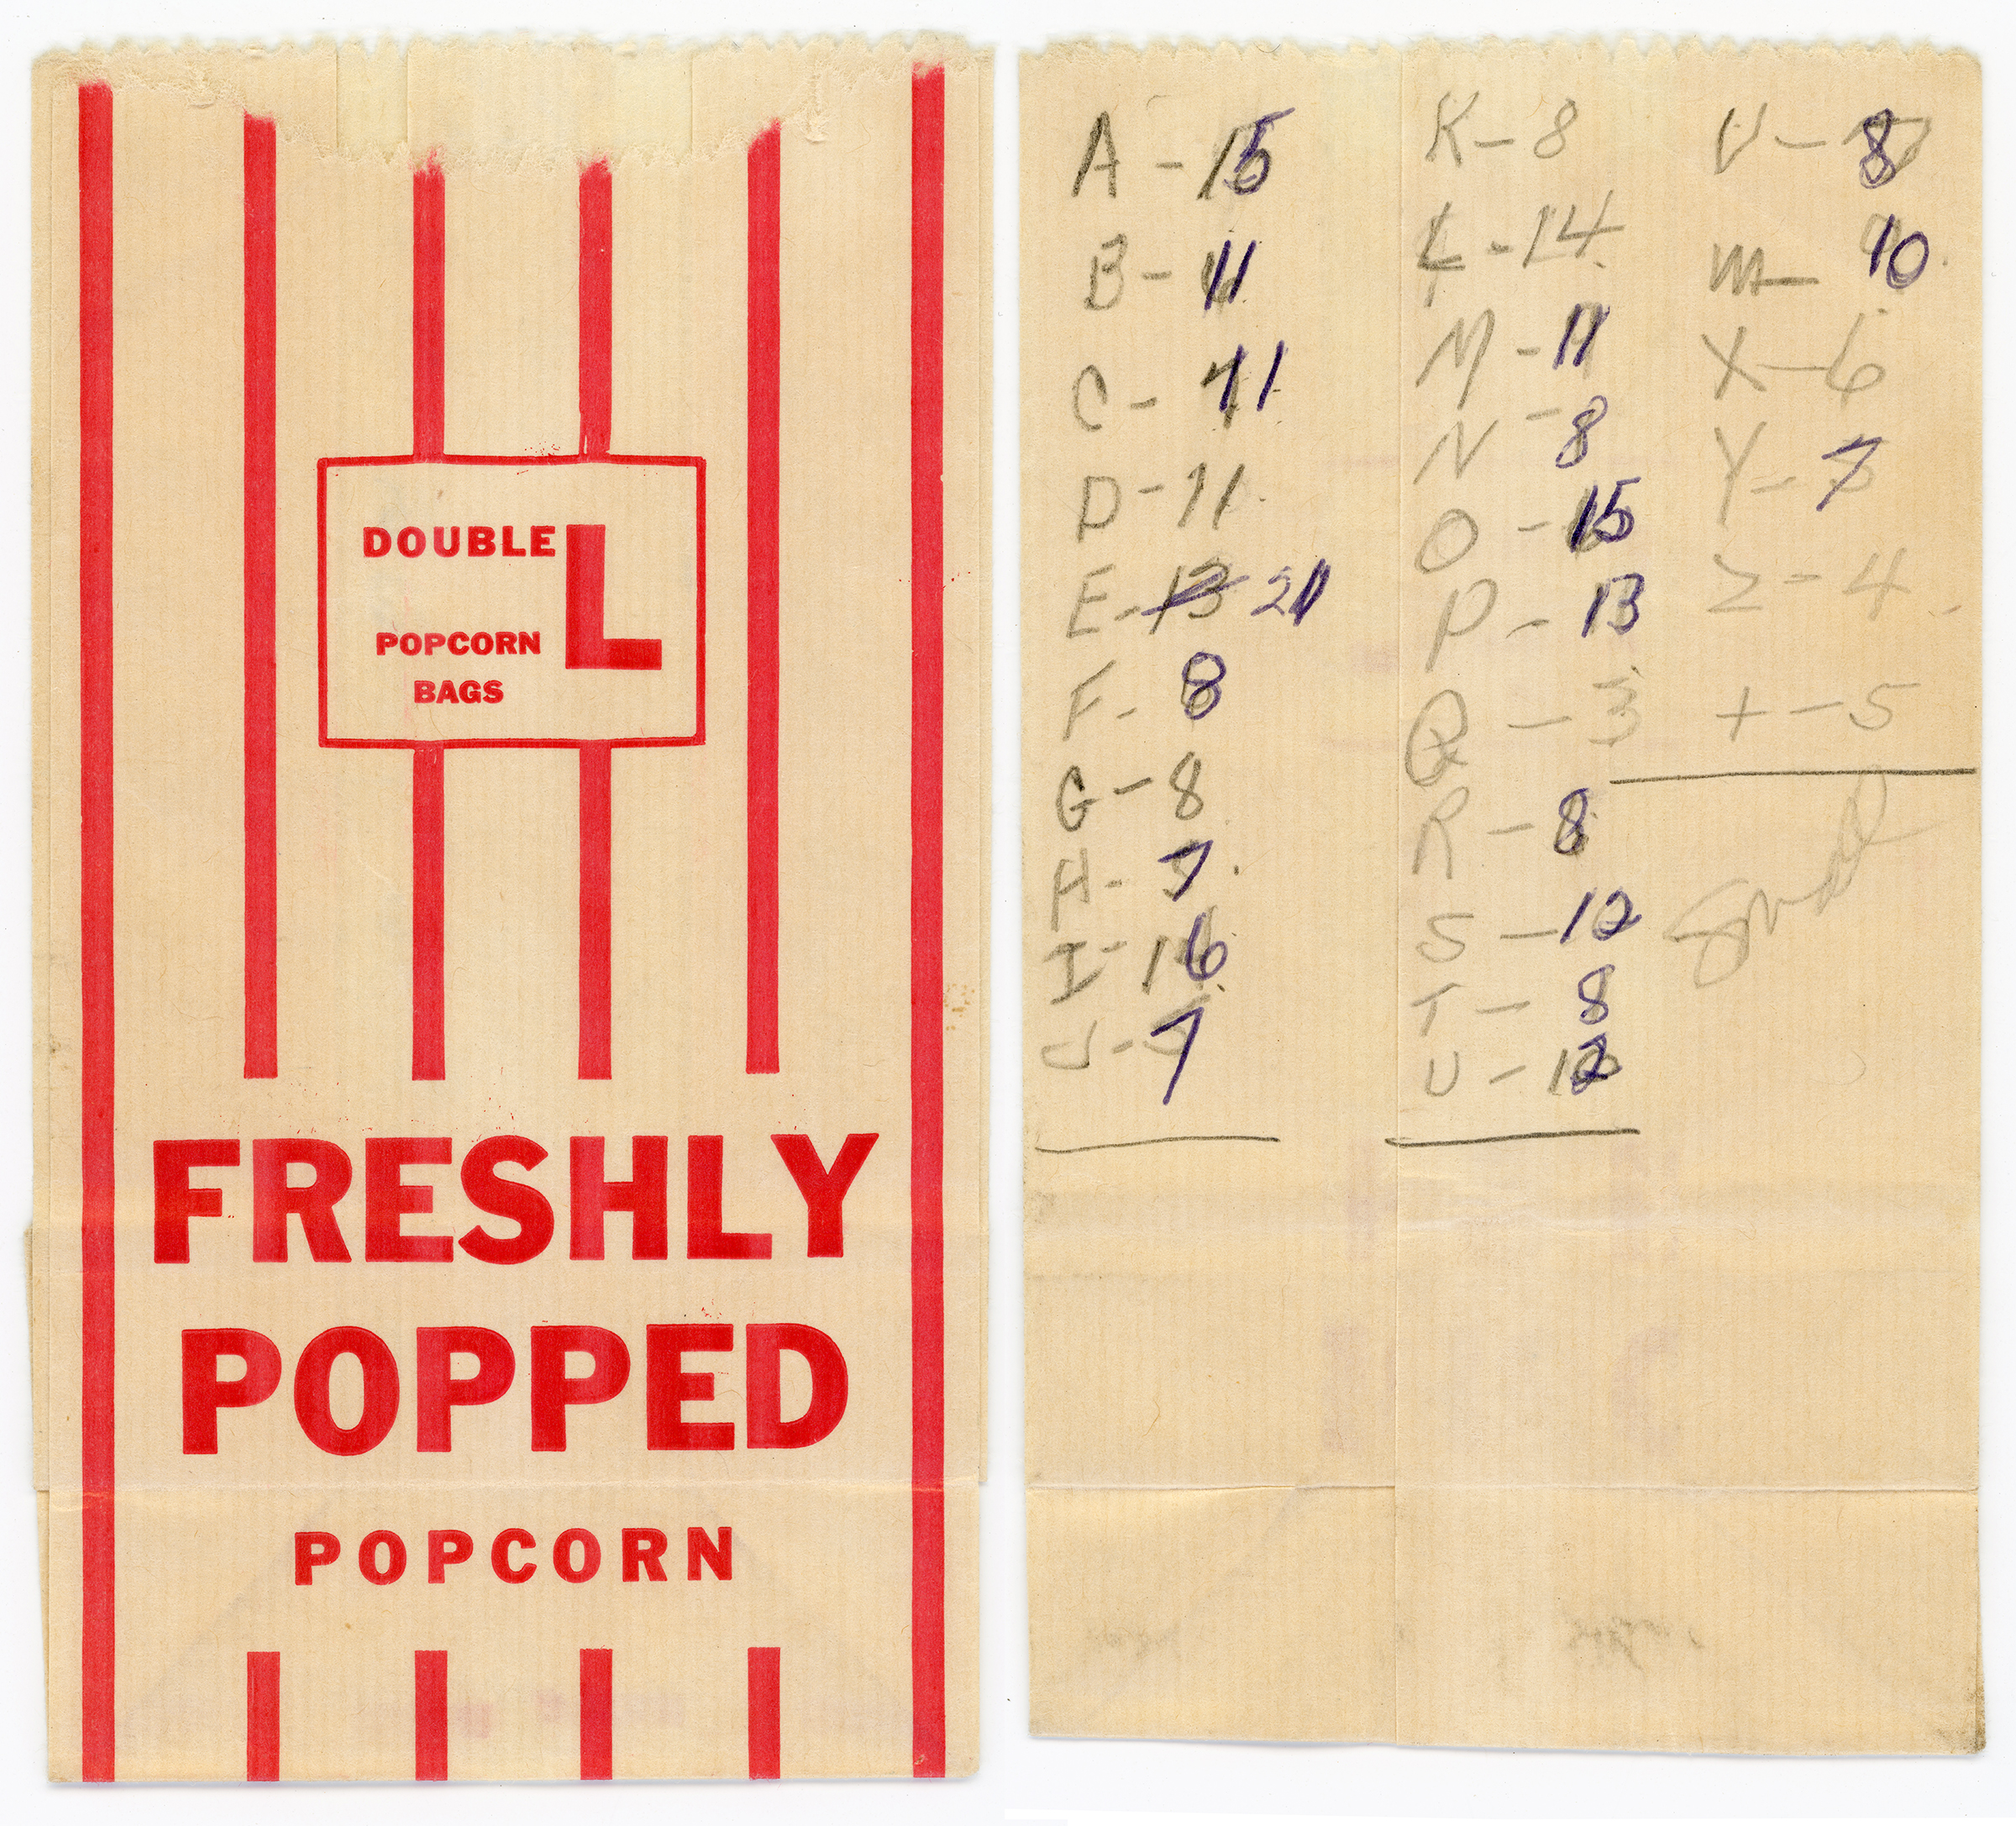 DOUBLE L
POPCORN
BAGS
FRESHLY
POPPED
POPCORN
A - 15
B - 11
C - 11
D - 11
E - 13 21
F - 8
G - 8
H - 7
I - 16
J - 7
K - 8
L - 14
M - 11
N - 8
O - 15
P - 13
Q - 3
R - 8
S - 12
T - 8
U - 12
V - 8
W - 10
X - 6
Y - 7
Z - 4
+ - 5